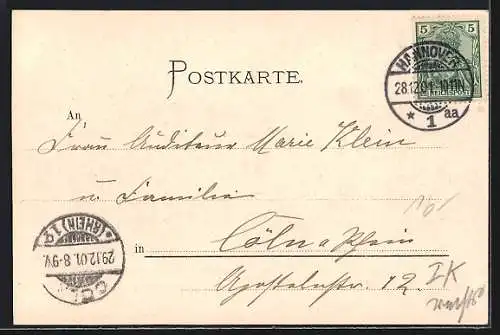 5 5
REICHSPOST
HANNOVER
28.12.01. 10-11N.
* 1 aa
POSTKARTE.
An
Frau Auditeur Marie Klein
u. Familie
in Cöln a Rhein
Apostelnstr. 12.
IK
CÖLN
29.12.01. 8-9V.
*(RHEIN)1.P.